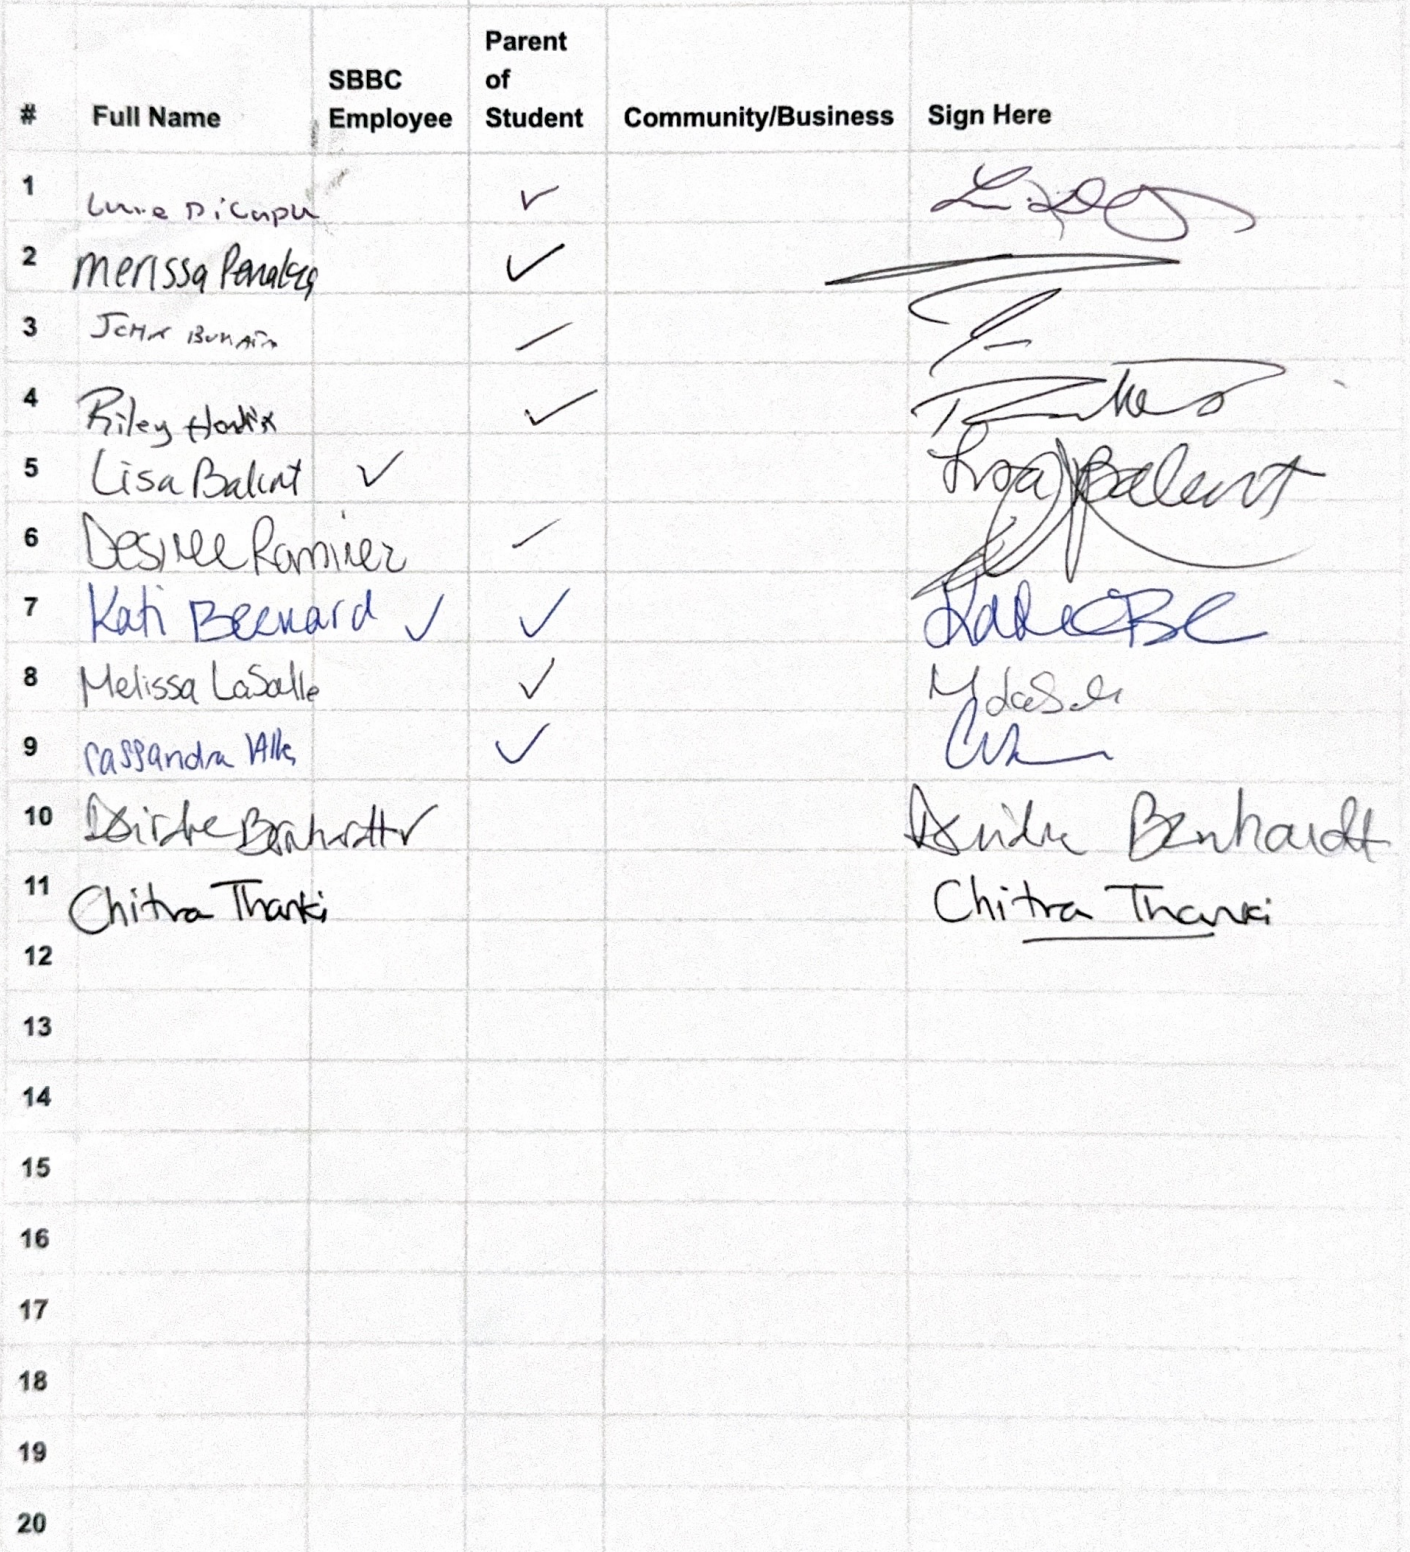 # Full Name SBBC Employee Parent of Student Community/Business Sign Here
1 ✓
2 Merissa ✓
3
4 Riley ✓
5 Lisa Balint ✓ Lisa Balint
6 Desiree Ramirez
7 Kati Bernard ✓ ✓
8 Melissa LaSalle ✓
9 Cassandra ✓
10 Deirdre Bernhardt ✓ Deirdre Bernhardt
11 Chitra Thanki Chitra Thanki
12
13
14
15
16
17
18
19
20